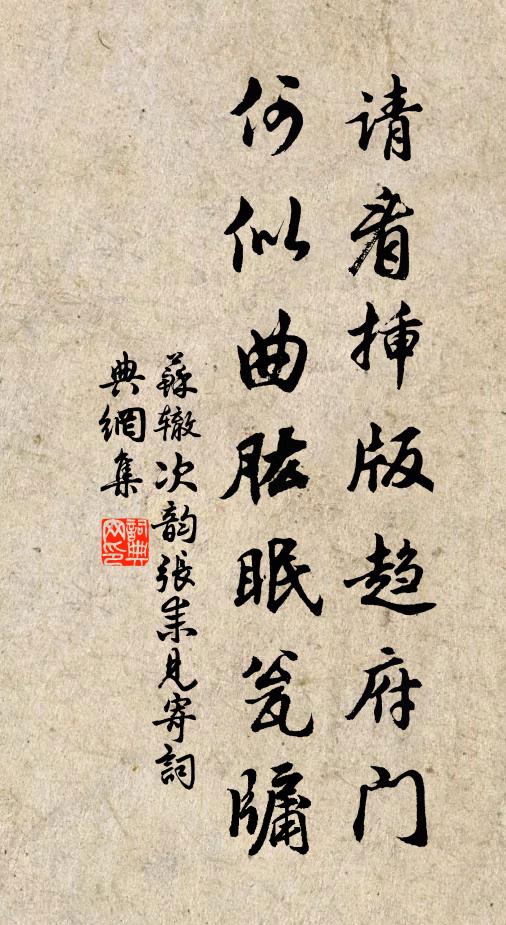 请看揷版趋府门
何似曲肱眠瓮牖
蘇辙次韵張耒見寄詞
典網集
詞典
网印